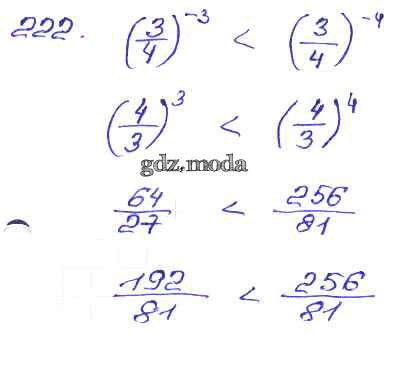 222. (3/4)^-3 < (3/4)^-4
(4/3)^3 < (4/3)^4
gdz.moda
64/27 < 256/81
192/81 < 256/81